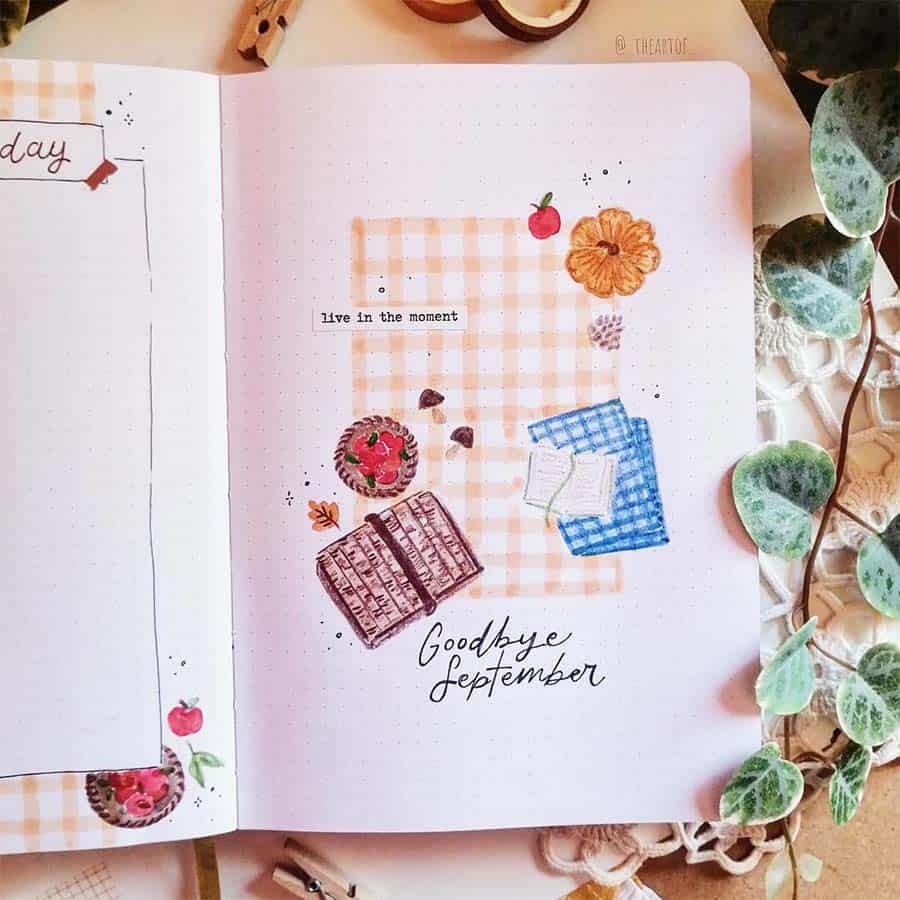 @ THEARTOF_
day
live in the moment
Goodbye
September